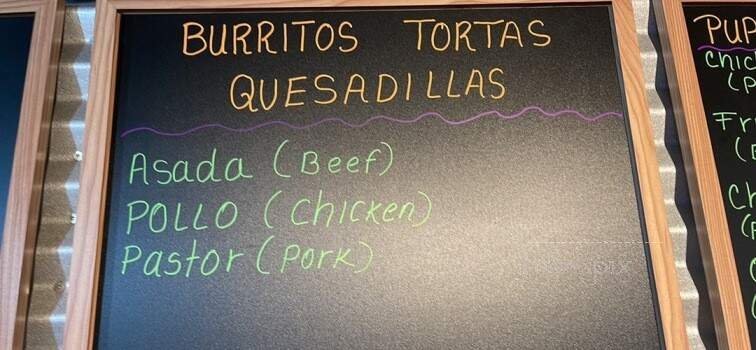 BURRITOS TORTAS
QUESADILLAS
Asada (Beef)
POLLO (Chicken)
Pastor (Pork)
PUP